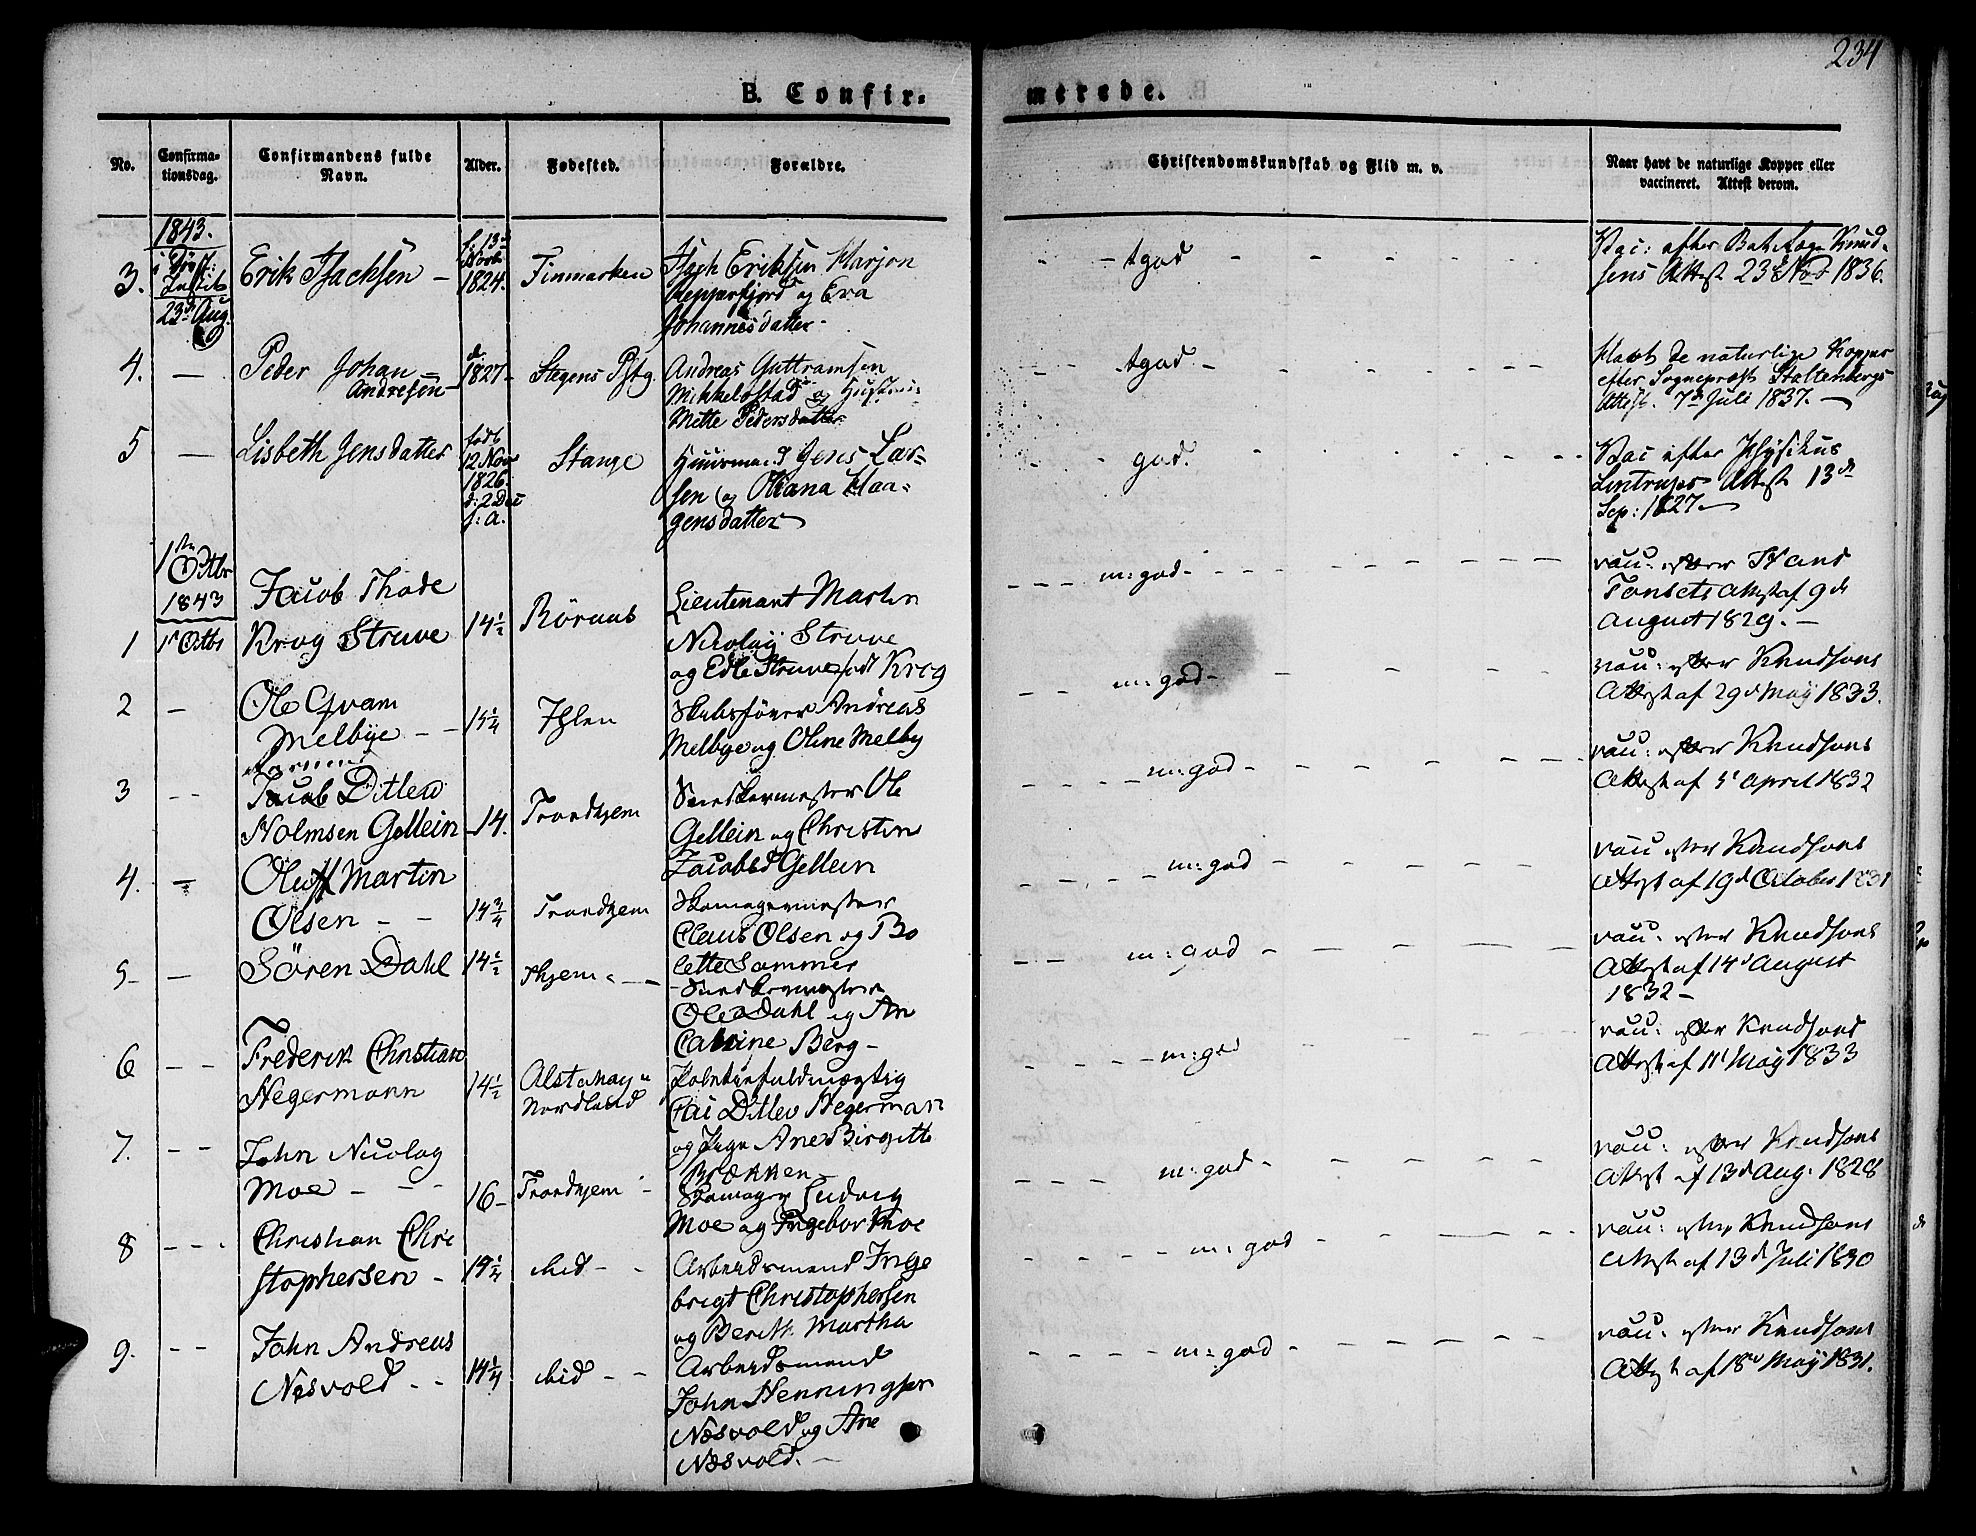 234
B. Confir-
merede.
No.
Confirma-
tionsdag.
Confirmandens fulde
Navn.
Alder.
Fødested.
Forældre.
Christendomskundskab og Flid m. v.
Naar havt de naturlige Kopper eller
vaccineret. Attest derom.
1843.
23de Aug.
3.
Erik Isachsen
f. 13de
Novbr
1824.
Finmarken
Isach Eriksen
Repparfjord og Eva
Johannesdatter
tgod
Vac: efter Bat. Læge Knud-
sens Attest 23de Nov 1836.
4. —
Peder Johan
Andresen
1827
Stegens Pstg.
Andreas Guttramsen
Mikkelstad og Hustru
Mette Pedersdatter
tgod
Havt de naturlige Kopper
efter Sogneprest Stoltenbergs
Attest. 7de Juli 1837.
5 —
Lisbeth Jensdatter
født
12 Nov
1826.
d: 2 Dec
s: a.
Stange
Huusmand Jens Lar-
sen og Oliana Haa-
gensdatter
god.
Vac efter Physikus
Lintrups Attest 13de
Sep: 1827
1ste
Octbr
1843
1
1ste Octbr
Jacob Thode
Krog Struve
14½
Röraas
Lieutenant Martin
Nicolay Struve
og Edle Struve født Krog
m: god
vacc: efter
Tonsets Attest af 9de
August 1829.
2 —
Ole Qvam
Melbye
15¼
Ihlen
Skibsförer Andreas
Melbye og Oline Melby
m: god
vacc: efter Knudsons
Attest af 29de May 1833.
3
Jacob Ditlew
Holmsen Gellein
14.
Trondhjem
Snedkermester Ole
Gellein og Christine
Jacobsd Gellein
m: god
vacc: efter Knudsons
Attest af 5te April 1832
4. —
Oluff Martin
Olsen
14¾
Trondhjem
Skomagermester
Claus Olsen og Bo
lette Sommer
m: god
vacc: efter Knudsons
Attest af 19de October 1831
5 —
Sören Dahl
14½
Thjem
Snedkermester
Ole Dahl og An
Catrine Berg
m: god
vacc: efter Knudsons
Attest af 14de August
1832
6
Frederik Christian
Hegermann
14½
Alstahoug
Nordland
Politiefuldmægtig
Cai Ditlev Hegerman
og Ane Birgitte
Brækken
m: god
vacc: efter Knudsons
Attest af 11te May 1833
7.
John Nicolay
Moe
16
Trondhjem
Skomager Ludvig
Moe og Ingebor Moe
m: god
vacc: efter Knudsons
Attest af 13de Aug. 1828
8
Christian Chri
stophersen
14¼
ibid
Arbeidsmand Inge
brigt Christophersen
og Berith Martha
m: god
vacc: efter Knudsons
Attest af 13de Juli 1830
9.
John Andreas
Næsvold
14¼
ibid
Arbeidsmand
John Henningsen
Næsvold og Ane
Næsvold.
m: god
vacc: efter Knudsons
Attest af 18de May 1831.